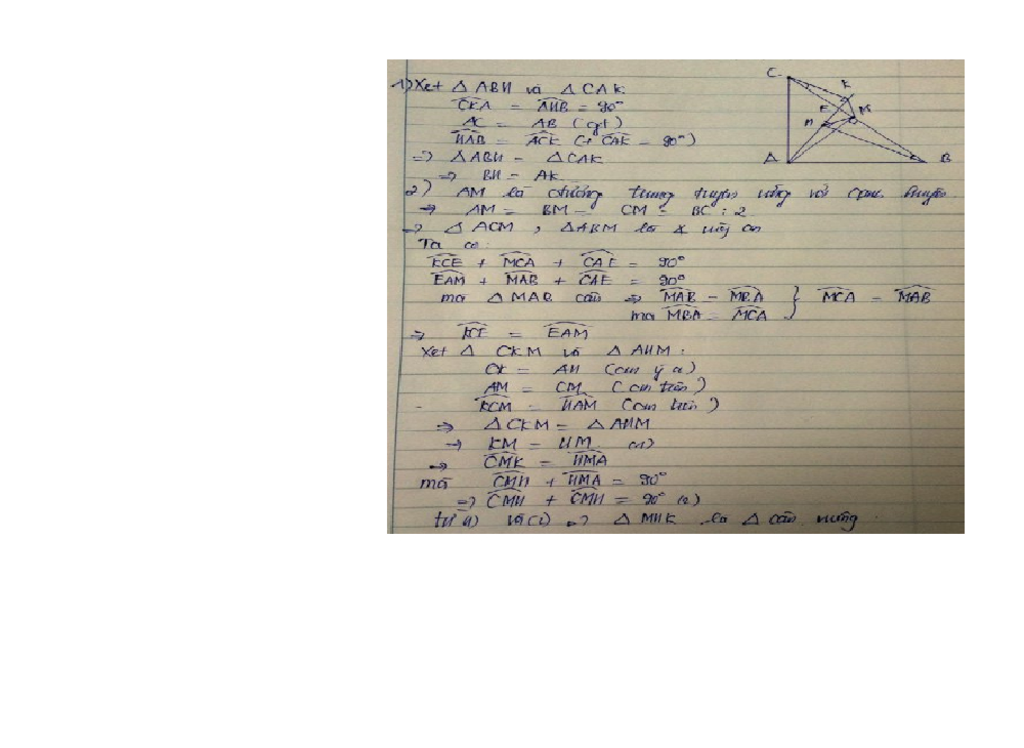 1) Xet △ ABH và △ CAK
CKA = AHB = 90°
AC = AB (gt)
HAB = ACK (+ CAK = 90°)
=> △ABH = △CAK
=> BH = AK
2) AM là đường trung tuyến ứng với cạnh huyền
=> AM = BM = CM = BC : 2
=> △ ACM , △ABM là
Ta có:
KCE + MCA + CAE = 90°
EAM + MAB + CAE = 90°
mà △ MAB cân => MAB = MBA } MCA = MAB
mà MBA = MCA
=> KCE = EAM
Xet △ CKM và △ AHM :
CK = AH (cm ý a)
AM = CM (cm trên)
KCM = HAM (cm trên)
=> △ CKM = △ AHM
=> KM = HM (1)
=> CMK = HMA
mà CMH + HMA = 90°
=> CMH + CMH = 90° (2)
từ 1) và => △ MHK là △ cân vuông
C
K
E
H
M
A
B